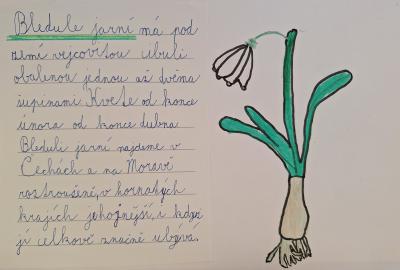 Bledule jarní má pod
zemí vejcovitou cibuli
obalenou jednou až dvěma
šupinami. Kvete od konce
února od konce dubna
Bleduli jarní najdeme v
Čechách a na Moravě
roztroušeně, v hornatých
krajích je hojnější, i když
jí celkově značně ubývá.